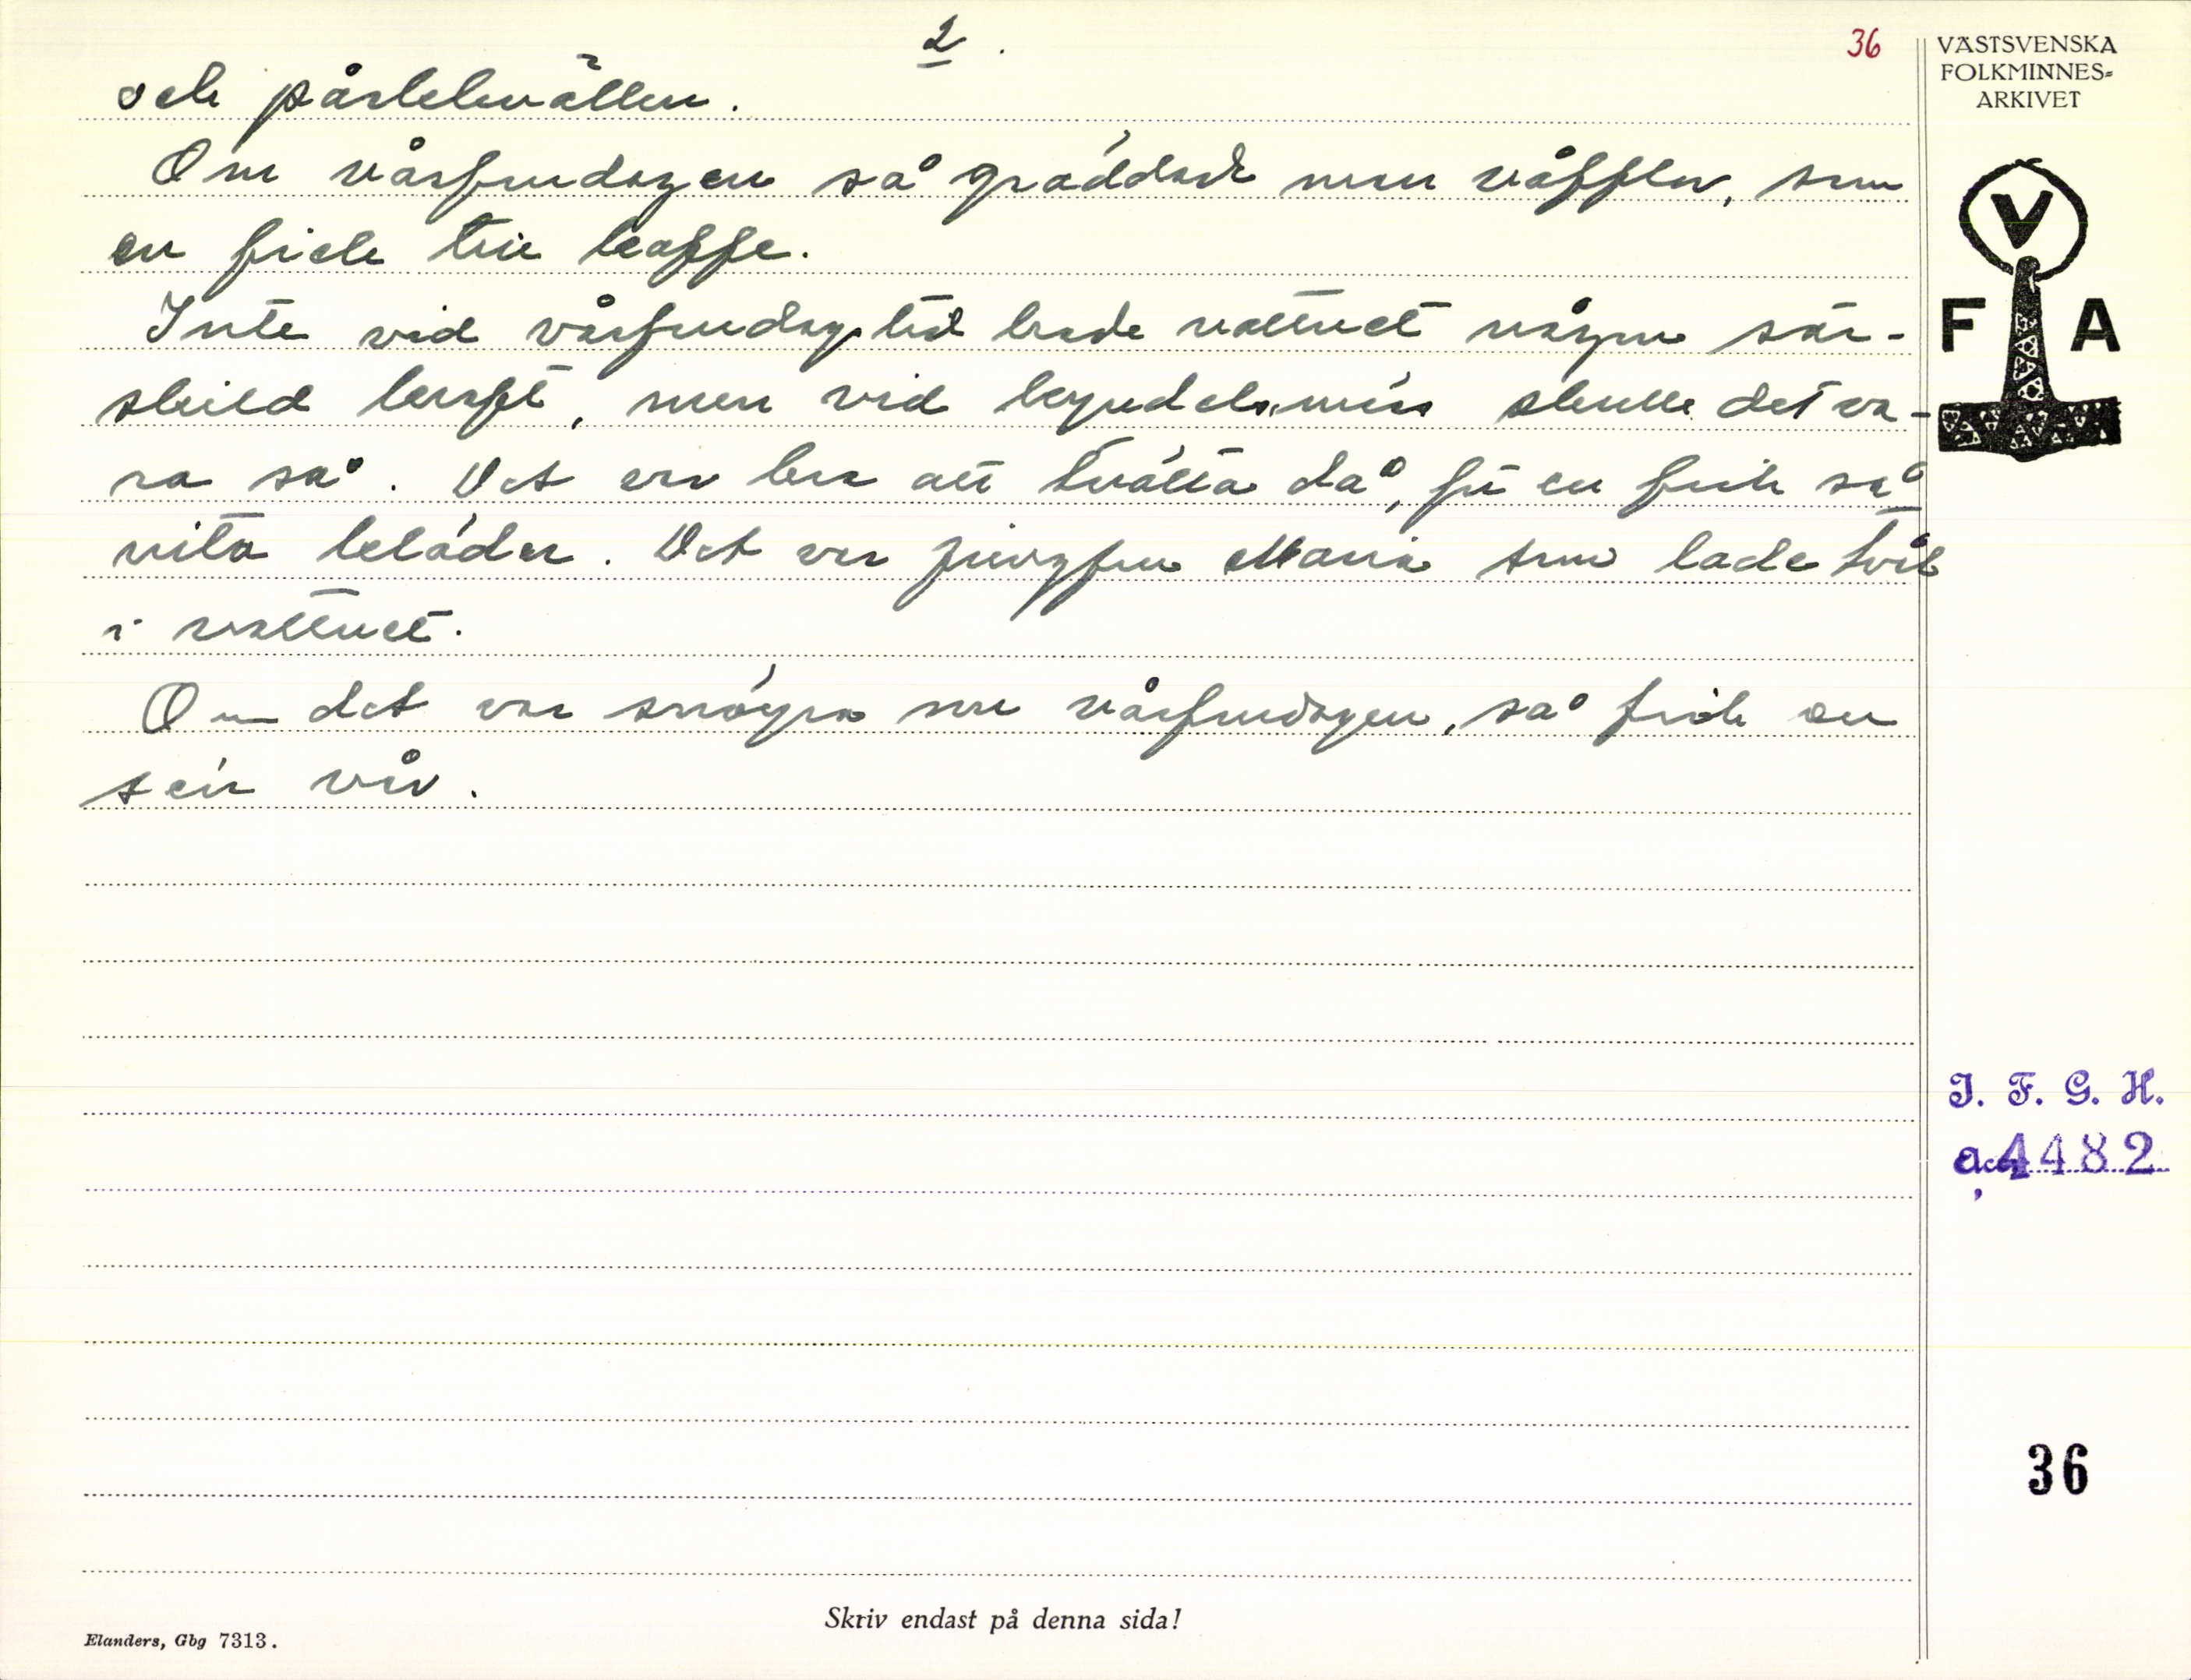 2.
36
och påskkvällen.
Om vårfrudagen så gräddade man våfflor, som
en fick till kaffe.
Inte vid vårfrudagstid hade vattnet någon sär-
skild kraft, men vid kyndelsmäss skulle det va-
ra så. Det var bra att tvätta då, för en fick så
vita kläder. Det var jungfru Maria som lade tvål
i vattnet.
Om det var om vårfrudagen, så fick en
sein vår.
VÄSTSVENSKA
FOLKMINNES-
ARKIVET
V
F A
I. F. G. H.
acc 4482
36
Skriv endast på denna sida!
Elanders, Gbg 7313.